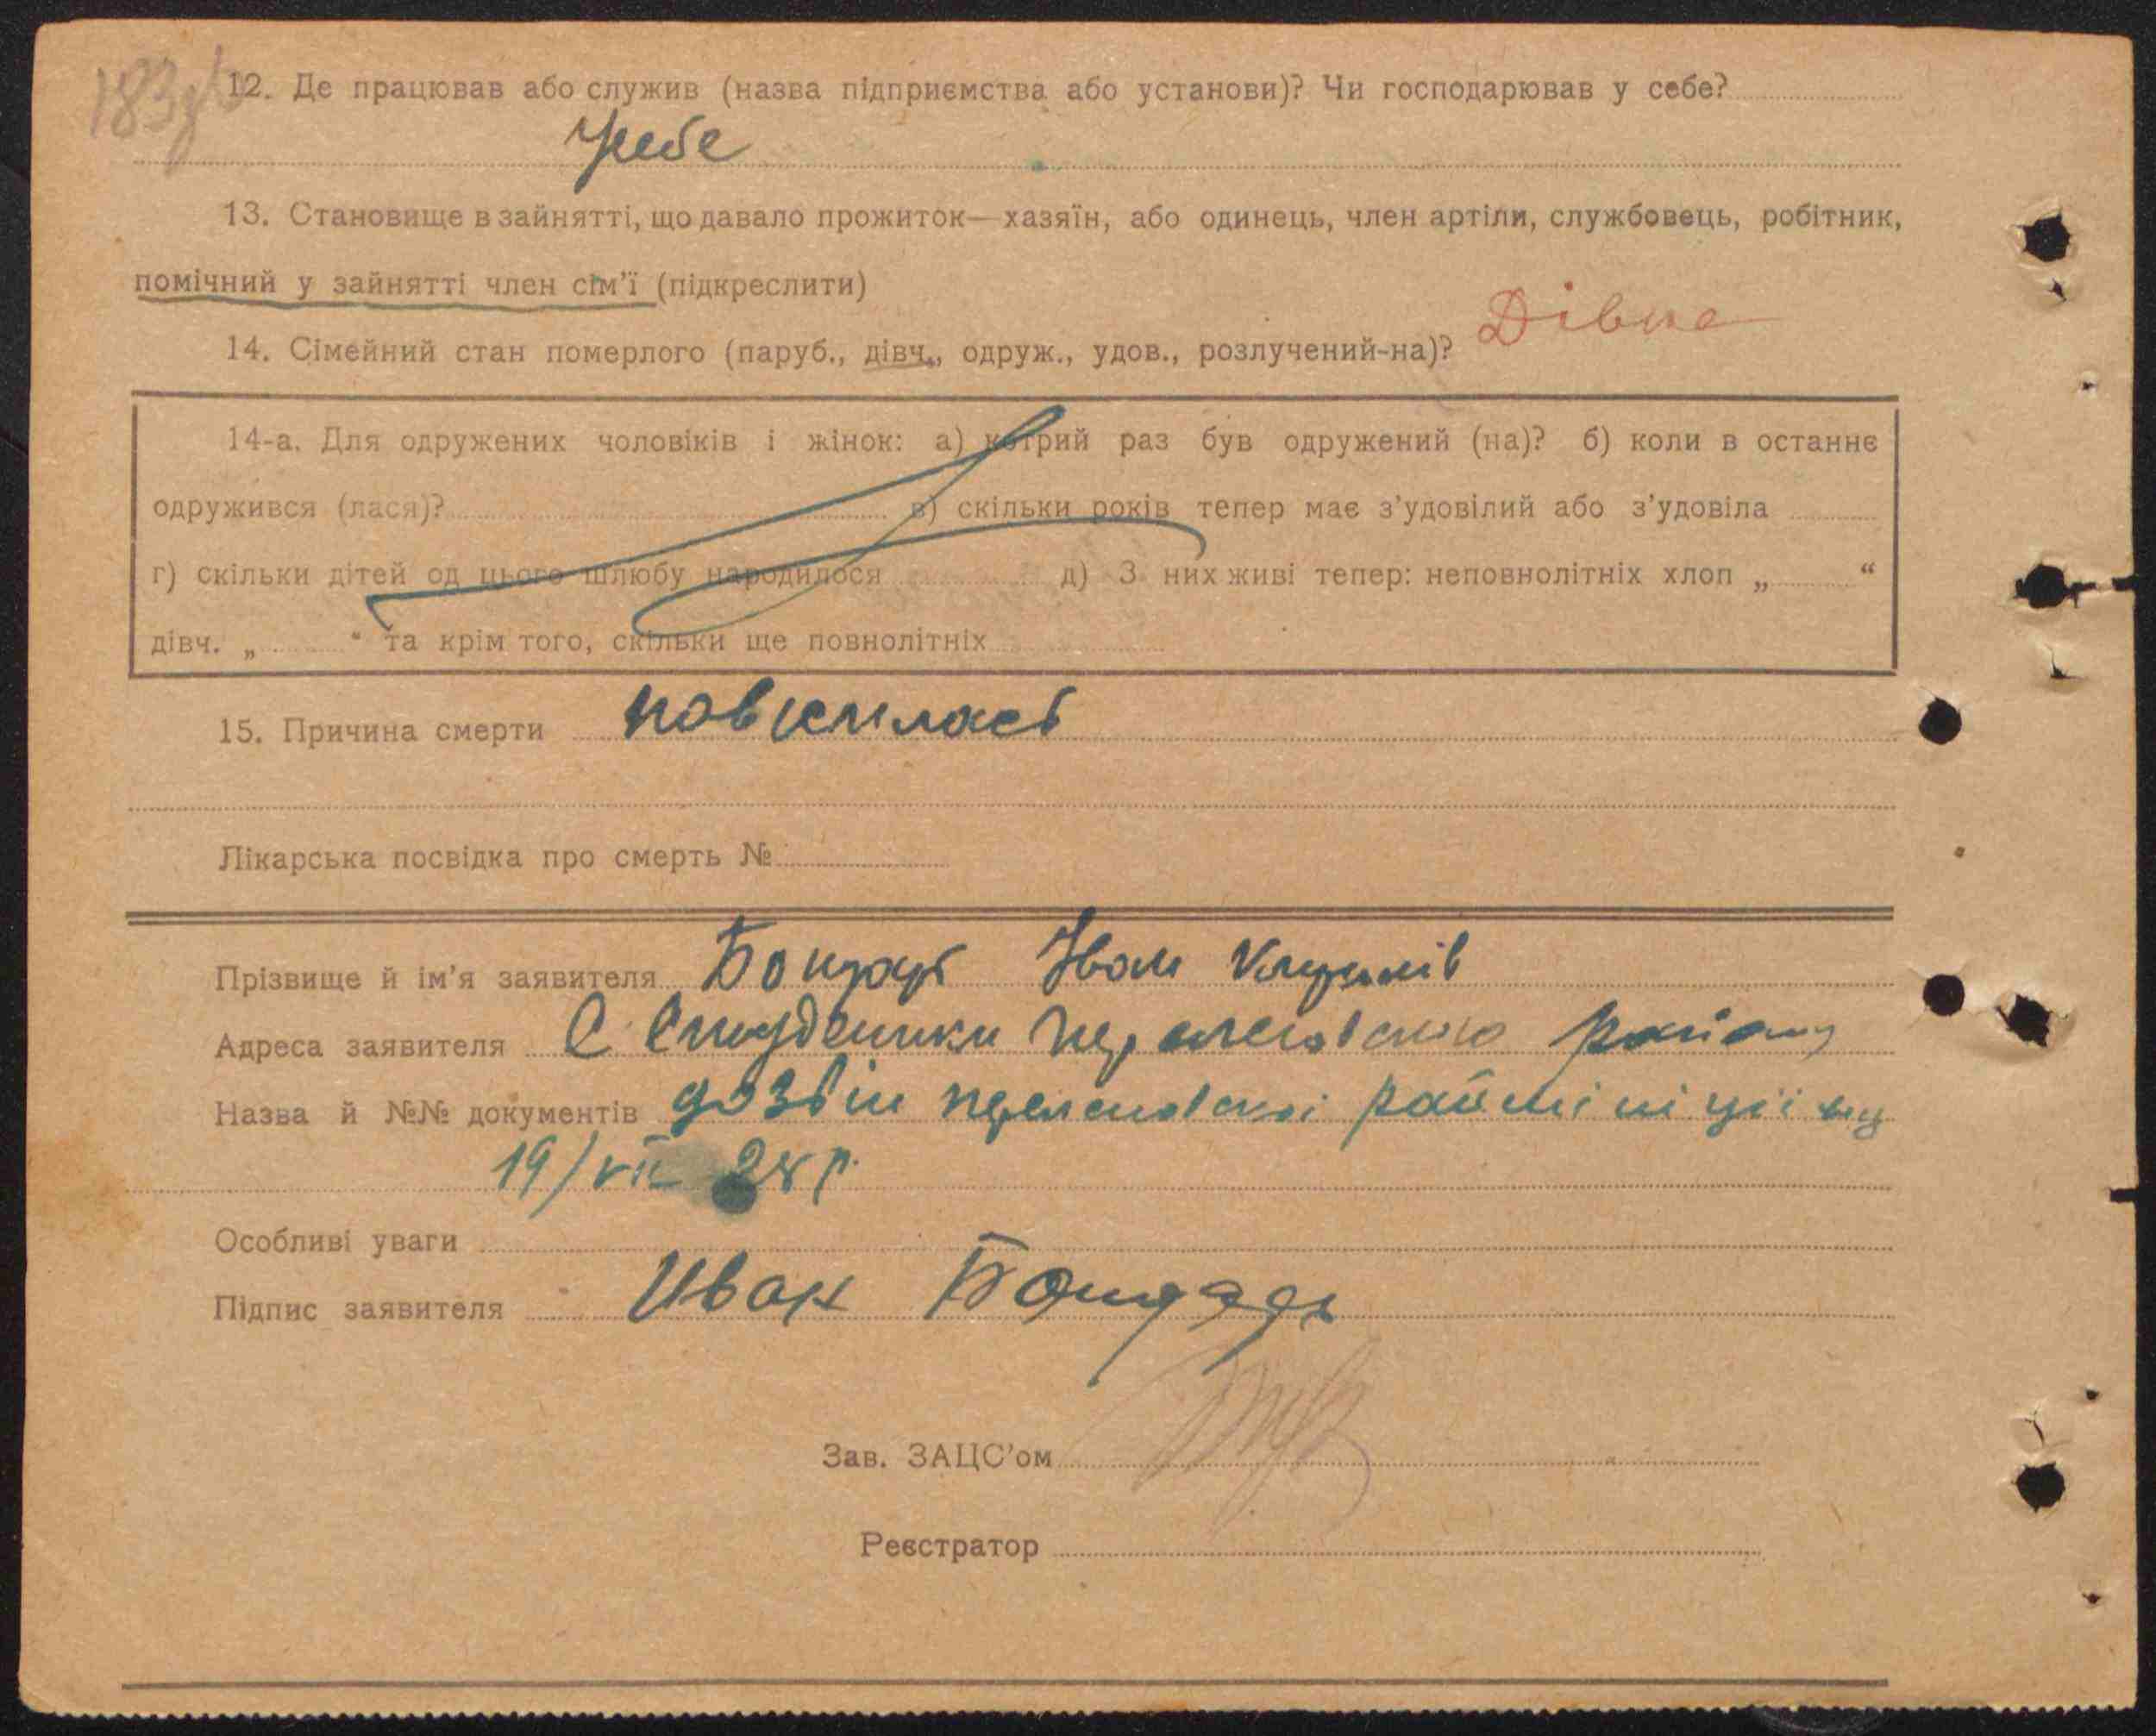 183
12. Де працював або служив (назва підприємства або установи)? Чи господарював у себе?
у себе
13. Становище в зайнятті, що давало прожиток — хазяїн, або одинець, член артіли, службовець, робітник,
помічний у зайнятті член сім'ї (підкреслити)
14. Сімейний стан померлого (паруб., дівч., одруж., удов., розлучений-на)? Дівка
14-а. Для одружених чоловіків і жінок: а) котрий раз був одружений (на)? б) коли в останнє
одружився (лася)? в) скільки років тепер має з'удовілий або з'удовіла
г) скільки дітей од цього шлюбу народилося д) З них живі тепер: неповнолітніх хлоп „ “
дівч. „ “ та крім того, скільки ще повнолітніх
15. Причина смерти повісилась
Лікарська посвідка про смерть №
Прізвище й ім'я заявителя Бондарь Іван
Адреса заявителя С Студеники району
Назва й №№ документів дозвіл райміліції від
19/VII 28 р.
Особливі уваги
Підпис заявителя Иван Бондарь
Зав. ЗАЦС'ом
Реєстратор